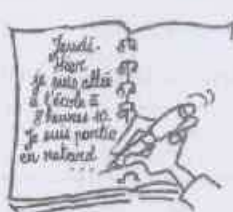 Jeudi.
Hier
je suis allée
à l'école à
8 heures 10.
Je suis partie
en retard
...